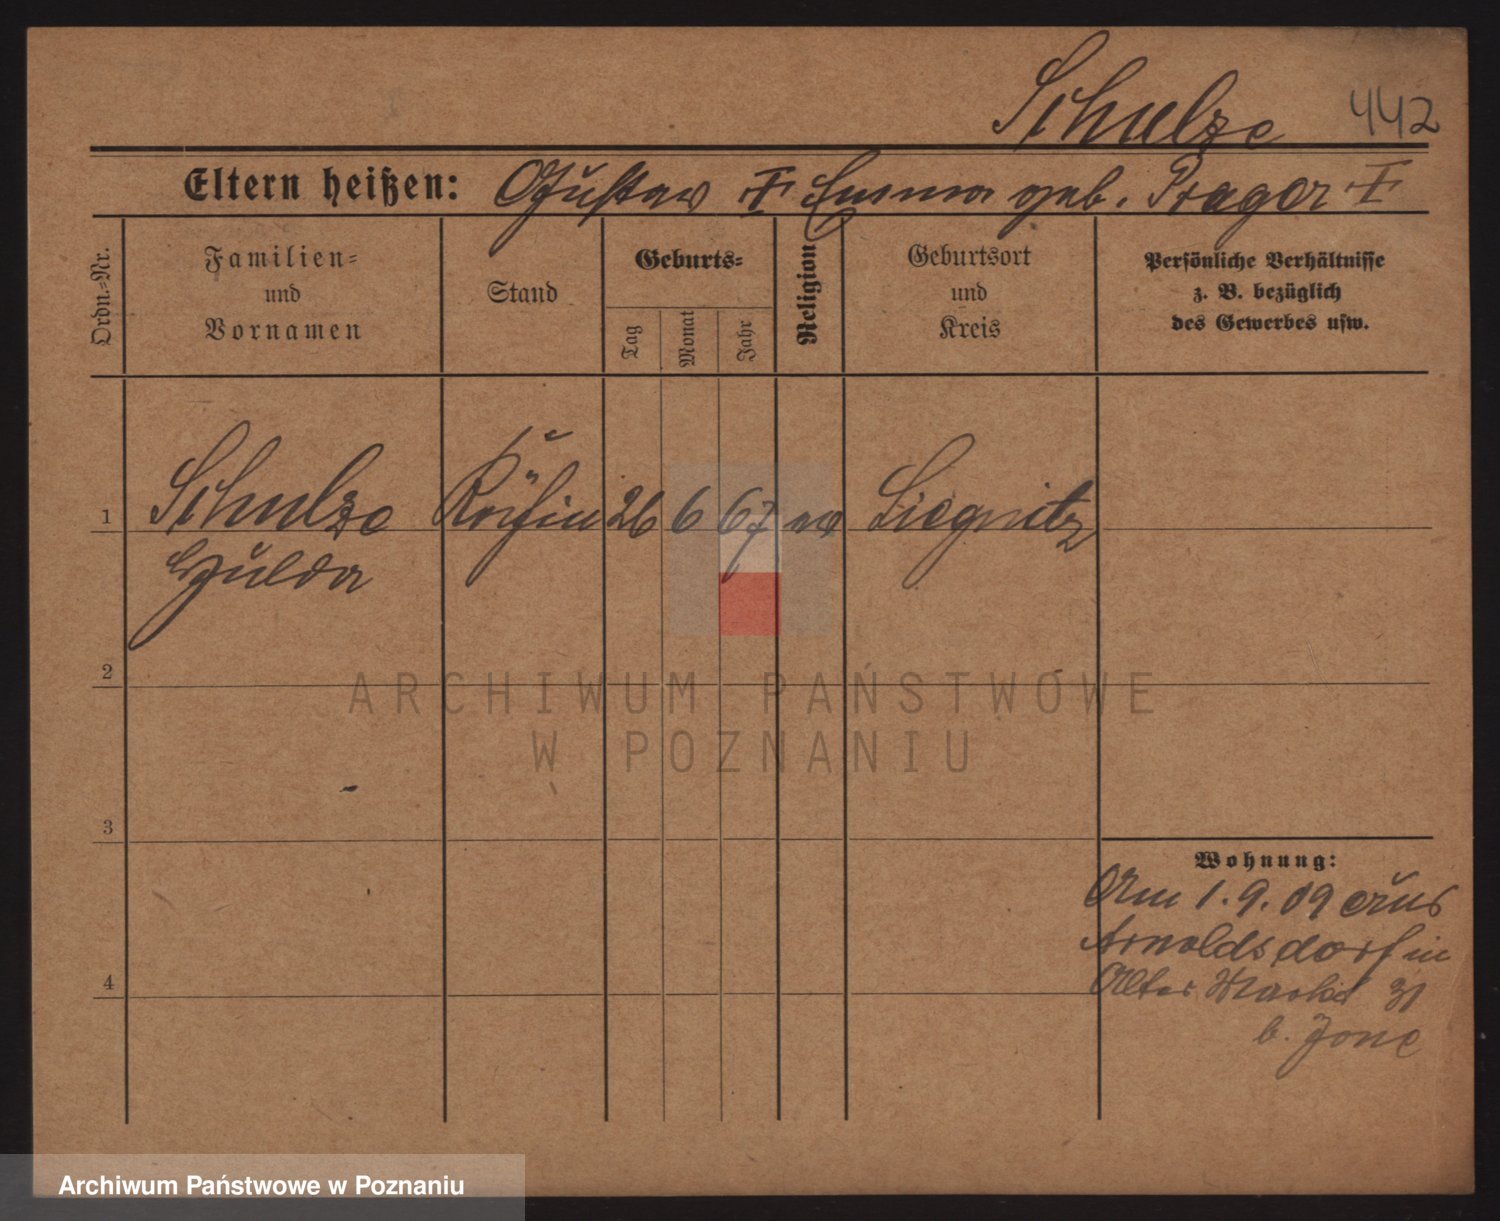 Schulze 442
Eltern heißen: Gustav † Emma geb. Prager †
Ordn.-Nr.
Familien=
und
Vornamen
Stand
Geburts=
Tag
Monat
Jahr
Religion
Geburtsort
und
Kreis
Persönliche Verhältnisse
z. B. bezüglich
des Gewerbes usw.
1 Schulze Köchin 26 6 67 ev Liegnitz
Hulda
2
ARCHIWUM PAŃSTWOWE
W POZNANIU
3
Wohnung:
Am 1.9.09 aus
Arnoldsdorf in
4 Alter Markt 31
b. Jone
Archiwum Państwowe w Poznaniu